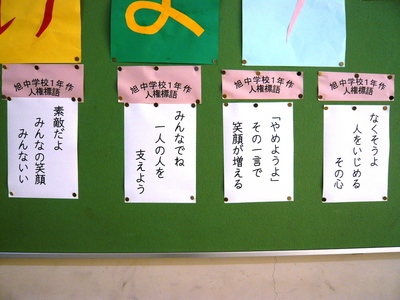 旭中学校1年 作
人権標語
なくそうよ
人をいじめる
その心
旭中学校1年 作
人権標語
「やめようよ」
その一言で
笑顔が増える
旭中学校1年 作
人権標語
みんなでね
一人の人を
支えよう
旭中学校1年 作
人権標語
素敵だよ
みんなの笑顔
みんないい